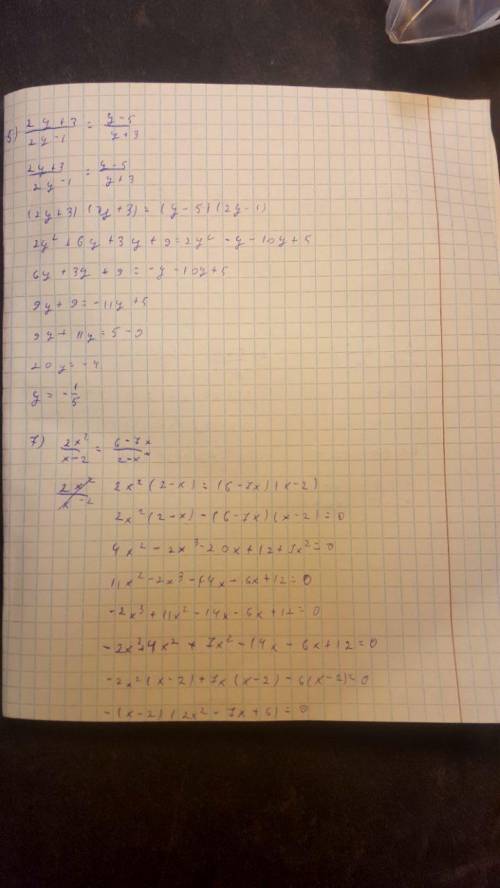 5) (2y+3)/(2y-1) = (y-5)/(y+3)
(2y+3)/(2y-1) = (y-5)/(y+3)
(2y+3)(y+3)=(y-5)(2y-1)
2y²+6y+3y+9=2y²-y-10y+5
6y+3y+9=-y-10y+5
9y+9=-11y+5
9y+11y=5-9
20y=-4
y=-1/5
7) 2x²/(x-2) = (6-7x)/(2-x)
2x²/(x-2) 2x²(2-x)=(6-7x)(x-2)
2x²(2-x)-(6-7x)(x-2)=0
4x²-2x³-20x+12+7x²=0
11x²-2x³-14x-6x+12=0
-2x³+11x²-14x-6x+12=0
-2x³+4x²+7x²-14x-6x+12=0
-2x²(x-2)+7x(x-2)-6(x-2)=0
-(x-2)(2x²-7x+6)=0